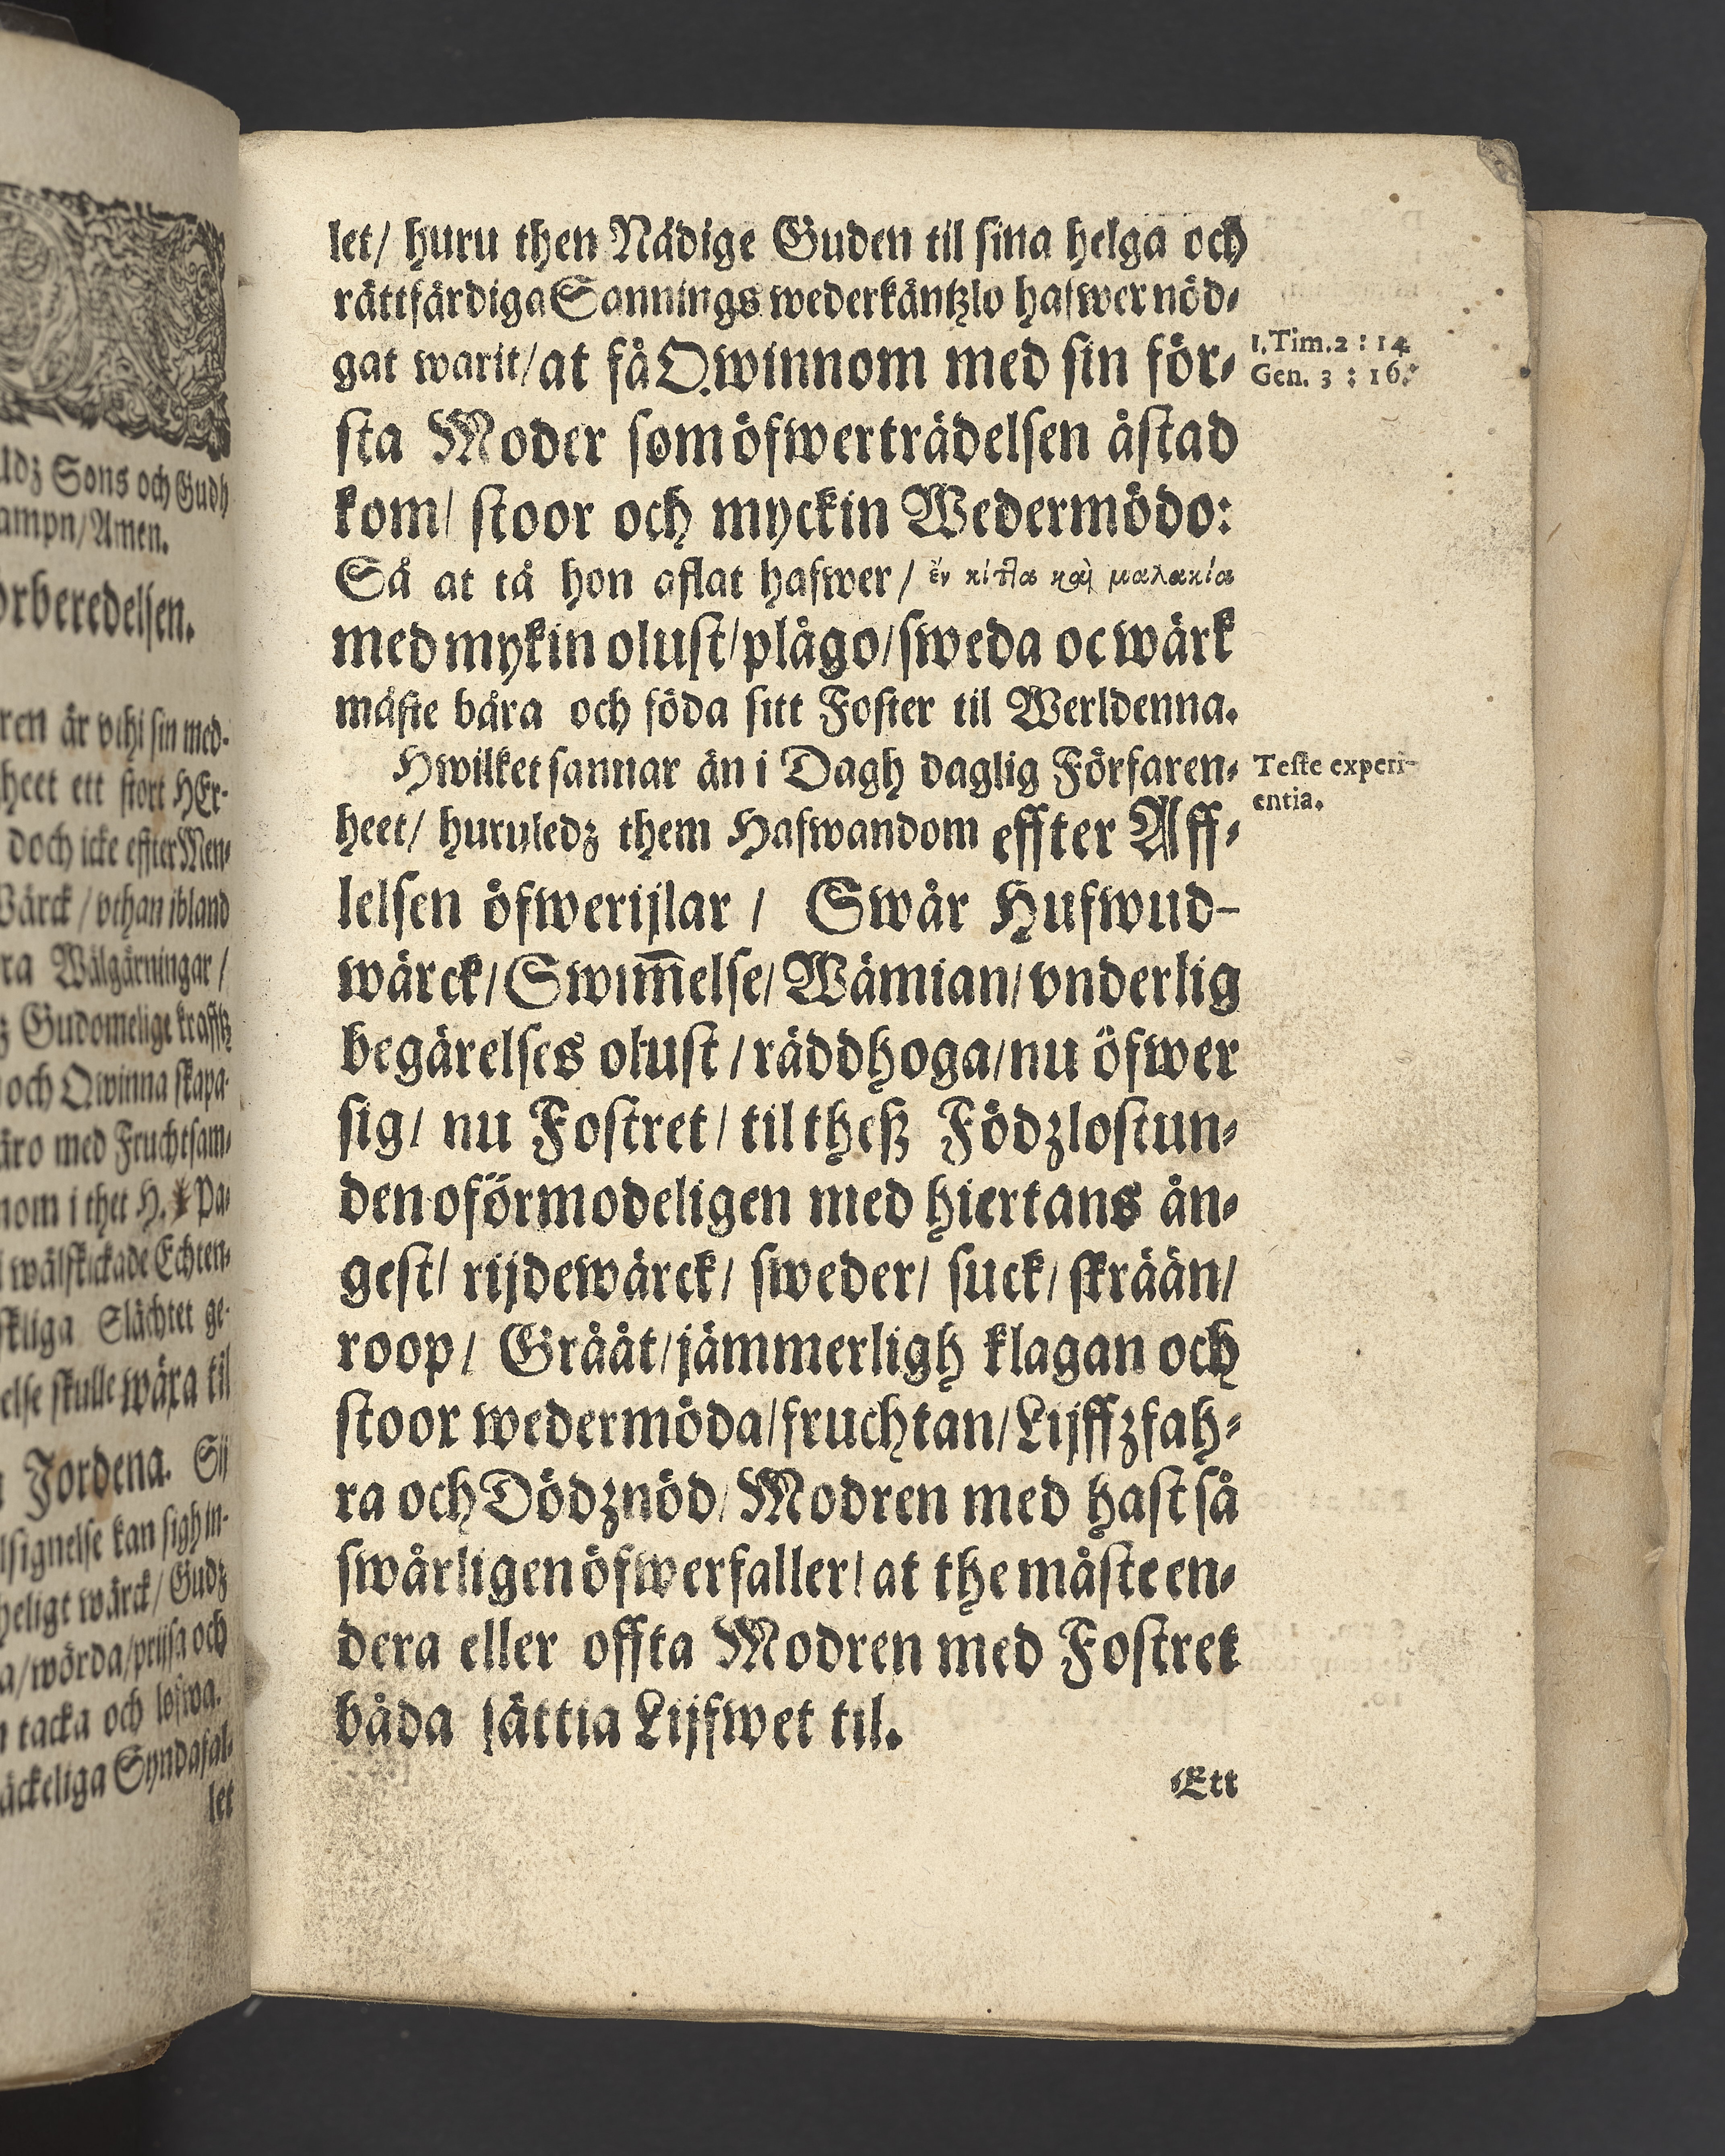 ldz Sons och Gudh
ampn/Amen.
orberedelsen.
ren är vthi sin med-
heet ett stort HEr-
doch icke effter Men-
Wärck / vthan ibland
ra Wälgärningar /
z Gudomelige krafftz
och Qwinna skapa-
äro med Fruchtsam-
nom i thet H. Pa-
wälskickade Echten-
skliga Slächtet ge-
else skulle wäxa til
Jordena. Sij
lsignelse kan sigh in-
heligt wärck/ Gudz
a/wörda/prijsa och
tacka och lofwa.
äckeliga Syndafal-
let
let/ huru then Nådige Guden til sina helga och
rättfärdiga Sannings wederkäntzlo hafwer nöd-
gat warit/at få Qwinnom med sin för-
sta Moder som öfwerträdelsen åstad
kom/ stoor och myckin Wedermödo:
Så at tå hon aflat hafwer/ ἐν κίττα καὶ μαλακία
med mykin olust/plågo/sweda oc wärk
måste bära och föda sitt Foster til Werldenna.
Hwilket sannar än i Dagh daglig Förfaren-
heet/ huruledz them Hafwandom effter Aff-
lelsen öfwerijlar / Swår Hufwud-
wärck/Swim̃else/Wämian/vnderlig
begärelses olust /räddhoga/nu öfwer
sig/ nu Fostret/ til theß Födzlostun-
den oförmodeligen med hiertans ån-
gest/ rijdewärck/ sweder/ suck/ skrään/
roop/ Grååt/jämmerligh klagan och
stoor wedermöda/fruchtan/Lijffzfah-
ra och Dödznöd/Modren med hast så
swårligen öfwerfaller/at the måste en-
dera eller offta Modren med Fostret
båda sättia Lijfwet til.
Ett
1.Tim.2 : 14
Gen. 3 : 16.
Teste experi-
entia.